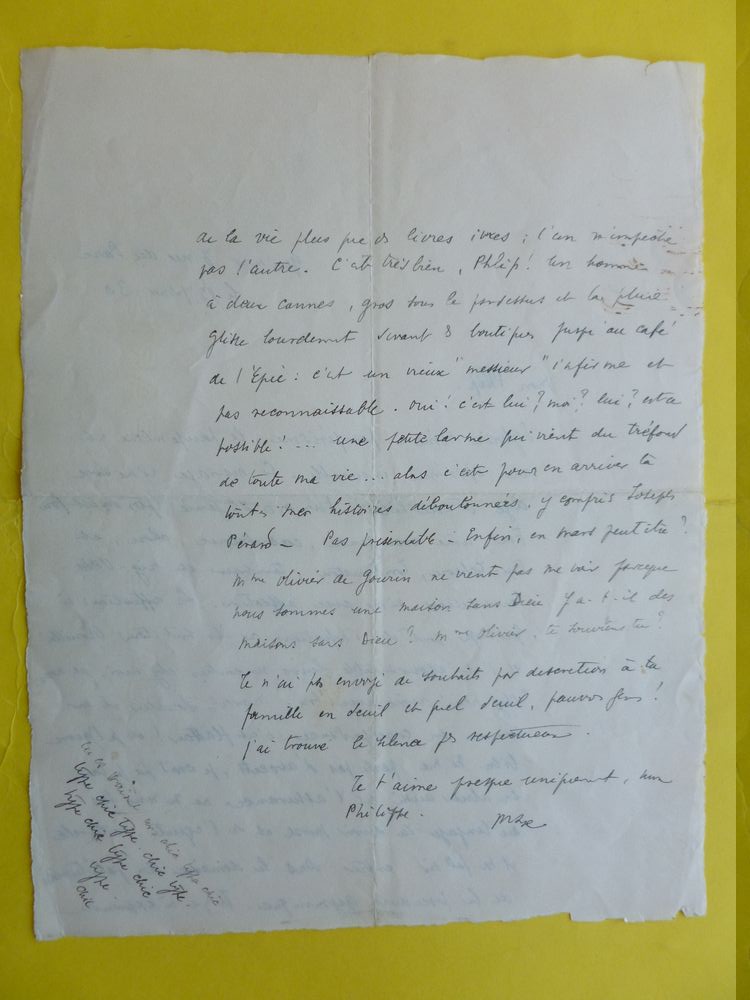 de la vie plus que des livres ivres ; l'un n'empêche
pas l'autre. C'est très bien, Philip! un homme
à deux cannes, gros sous le pardessus et la pluie
glisse lourdement devant 3 boutiques jusqu'au café
de l'Epée : c'est un vieux "messieur" infirme et
pas reconnaissable. oui! c'est lui? moi? lui? est-ce
possible! ... une petite larme qui vient du tréfond
de toute ma vie ... alors c'est pour en arriver là
toutes mes histoires déboutonnées, y compris Joseph
Pérard – Pas présentable – Enfin, en mars peut être?
Mme Olivier de Gourin ne vient pas me voir parceque
nous sommes une maison sans Dieu. Y a-t-il des
maisons sans Dieu? Mme Olivier, te souviens tu?
Je n'ai pas envoyé de souhaits par discretion à ta
famille en deuil et quel deuil, pauvres gens!
j'ai trouvé le silence plus respectueux.
Je t'aime presque uniquement, mon
Philippe.
Max
tu es un chic type chic
type chic type chic type
type chic type chic
type
chic